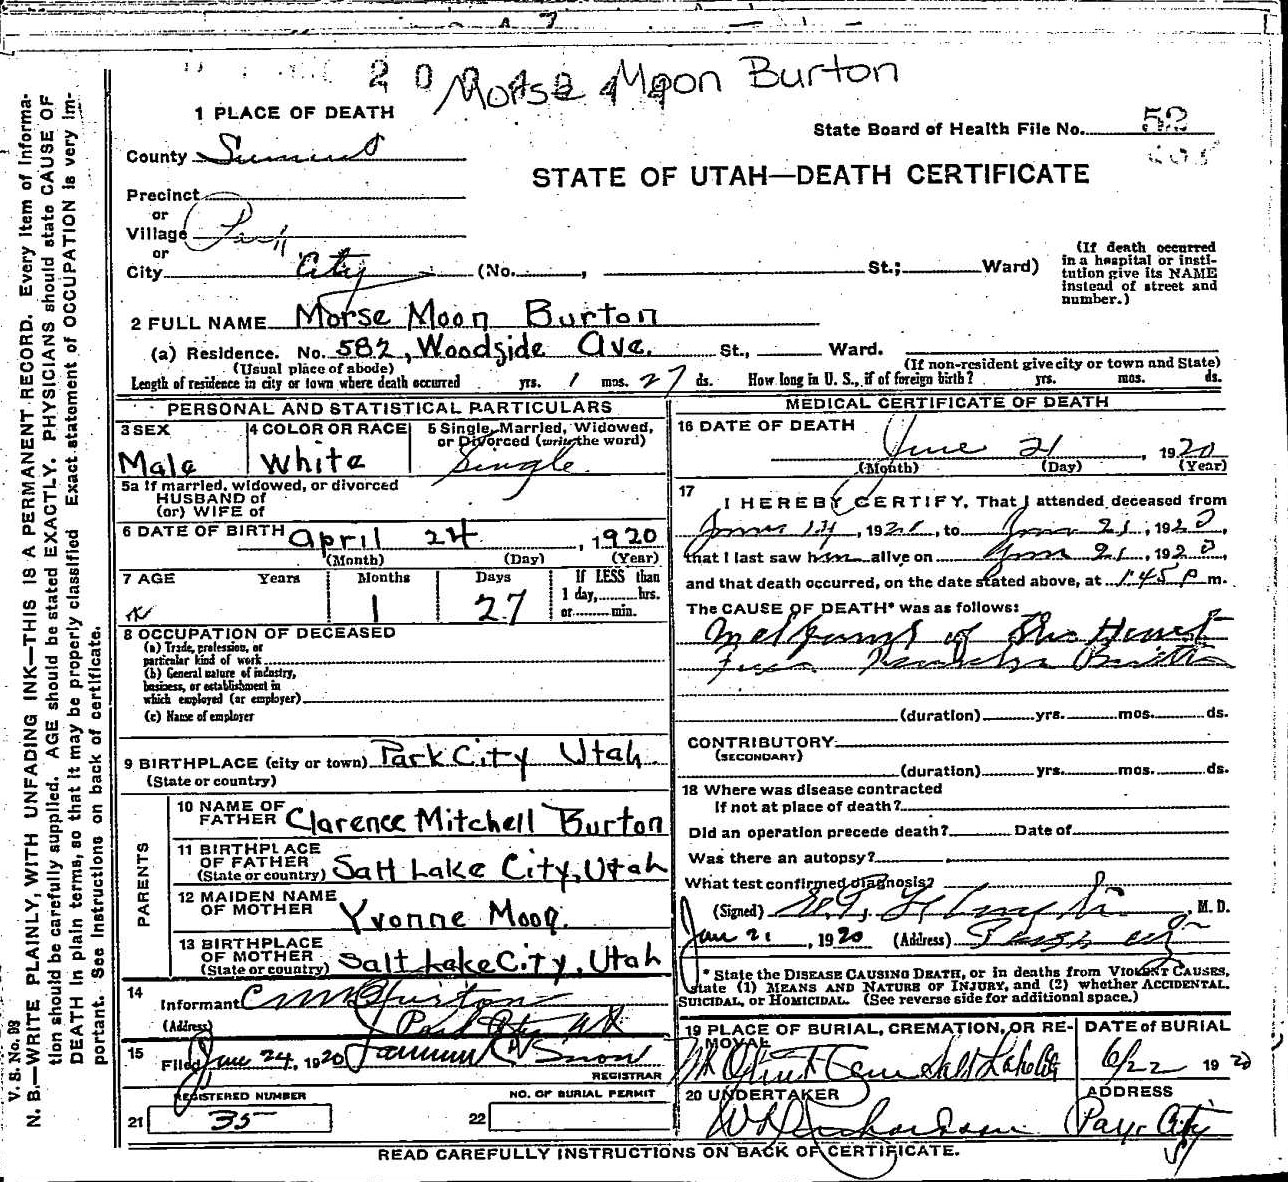 Morse Moon Burton
1 PLACE OF DEATH
State Board of Health File No. 52
County Summit
STATE OF UTAH—DEATH CERTIFICATE
Precinct
or
Village Park
or
City City (No. , St.; Ward)
(If death occurred in a hospital or institution give its NAME instead of street and number.)
2 FULL NAME Morse Moon Burton
(a) Residence. No. 582, Woodside Ave. St., Ward.
(Usual place of abode) (If non-resident give city or town and State)
Length of residence in city or town where death occurred yrs. 1 mos. 27 ds. How long in U. S., if of foreign birth? yrs. mos. ds.
PERSONAL AND STATISTICAL PARTICULARS
3 SEX 4 COLOR OR RACE 5 Single, Married, Widowed, or Divorced (write the word)
Male White Single
5a If married, widowed, or divorced
HUSBAND of
(or) WIFE of
6 DATE OF BIRTH April 24, 1920
(Month) (Day) (Year)
7 AGE Years Months Days If LESS than 1 day, hrs. or min.
1 27
8 OCCUPATION OF DECEASED
(a) Trade, profession, or
particular kind of work
(b) General nature of industry,
business, or establishment in
which employed (or employer)
(c) Name of employer
9 BIRTHPLACE (city or town) Park City Utah
(State or country)
PARENTS
10 NAME OF FATHER Clarence Mitchell Burton
11 BIRTHPLACE OF FATHER (State or country) Salt Lake City, Utah
12 MAIDEN NAME OF MOTHER Yvonne Moon
13 BIRTHPLACE OF MOTHER (State or country) Salt Lake City, Utah
14 Informant C M Burton
(Address) Park City, Ut
15 Filed June 24, 1920 Snow
REGISTRAR
REGISTERED NUMBER NO. OF BURIAL PERMIT
21 35 22
MEDICAL CERTIFICATE OF DEATH
16 DATE OF DEATH June 21, 1920
(Month) (Day) (Year)
17 I HEREBY CERTIFY, That I attended deceased from
, 192 , to June 21, 1920
that I last saw him alive on June 21, 1920
and that death occurred, on the date stated above, at 1:45 P m.
The CAUSE OF DEATH* was as follows:
of The Heart
(duration) yrs. mos. ds.
CONTRIBUTORY
(SECONDARY)
(duration) yrs. mos. ds.
18 Where was disease contracted
If not at place of death?
Did an operation precede death? Date of
Was there an autopsy?
What test confirmed diagnosis?
(Signed) , M. D.
June 21, 1920 (Address) Park City
* State the DISEASE CAUSING DEATH, or in deaths from VIOLENT CAUSES,
state (1) MEANS AND NATURE OF INJURY, and (2) whether ACCIDENTAL,
SUICIDAL, or HOMICIDAL. (See reverse side for additional space.)
19 PLACE OF BURIAL, CREMATION, OR REMOVAL DATE OF BURIAL
Mt Olivet Cem Salt Lake City 6/22 1920
20 UNDERTAKER ADDRESS
W Richardson Park City
READ CAREFULLY INSTRUCTIONS ON BACK OF CERTIFICATE.
V. S. No. 98
N. B.—WRITE PLAINLY, WITH UNFADING INK—THIS IS A PERMANENT RECORD. Every item of informa-
tion should be carefully supplied. AGE should be stated EXACTLY. PHYSICIANS should state CAUSE OF
DEATH in plain terms, so that it may be properly classified. Exact statement of OCCUPATION is very im-
portant. See instructions on back of certificate.